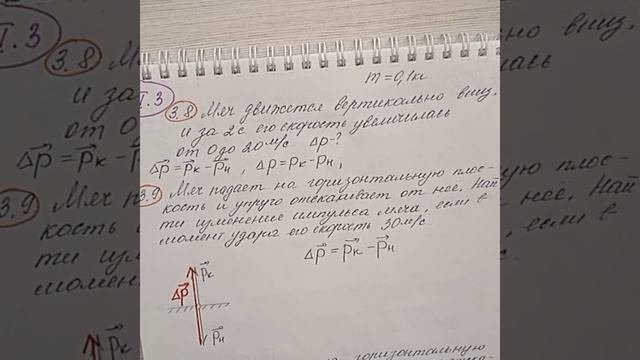 m = 0,1 кг
I.3
3.8 Мяч движется вертикально вниз,
и за 2с его скорость увеличилась
от 0 до 20 м/с. Δp-?
Δp⃗ = p⃗к - p⃗н, Δp = pк - pн,
3.9 Мяч падает на горизонтальную плос-
кость и упруго отскакивает от неё. Най
ти изменение импульса мяча, если в
момент удара его скорость 30 м/с.
Δp⃗ = p⃗к - p⃗н
p⃗к
Δp⃗
p⃗н